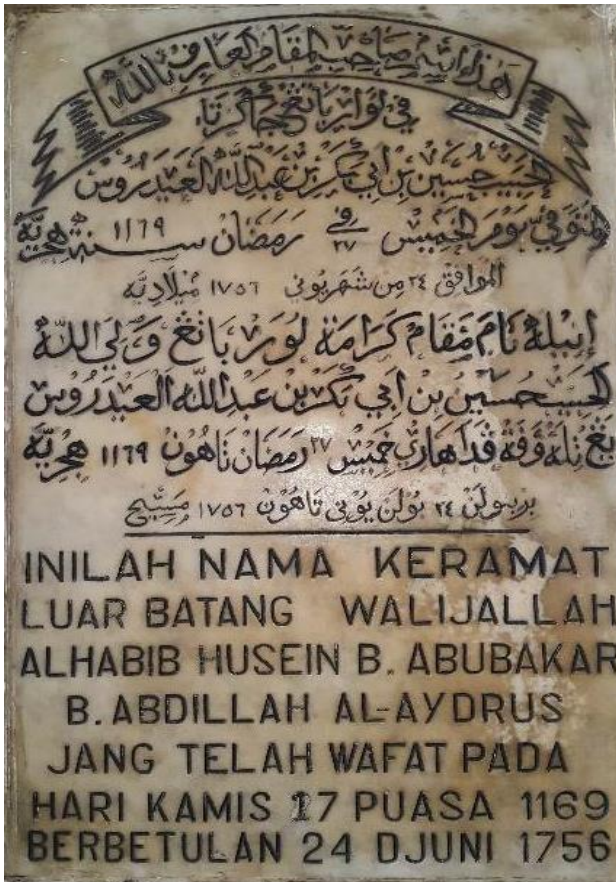 هذا إسم صاحب المقام العارف بالله
في لوار باتڠ جاكرتا
الحبيب حسين بن أبي بكر بن عبد الله العيدروس
المتوفي يوم الخميس في ٢٧ رمضان سنة ١١٦٩ هجرية
الموافق ٢٤ من شهر يوني ١٧٥٦ ميلادية
إنيله نام مقام كرامة لور باتڠ ولي الله
الحبيب حسين بن ابي بكر بن عبد الله العيدروس
يڠ تله وفة ڤدا هاري خميس ٢٧ رمضان تاهون ١١٦٩ هجرية
بربتولن ٢٤ بولن يوني تاهون ١٧٥٦ مسيحي
INILAH NAMA KERAMAT
LUAR BATANG WALIJALLAH
ALHABIB HUSEIN B. ABUBAKAR
B. ABDILLAH AL-AYDRUS
JANG TELAH WAFAT PADA
HARI KAMIS 17 PUASA 1169
BERBETULAN 24 DJUNI 1756